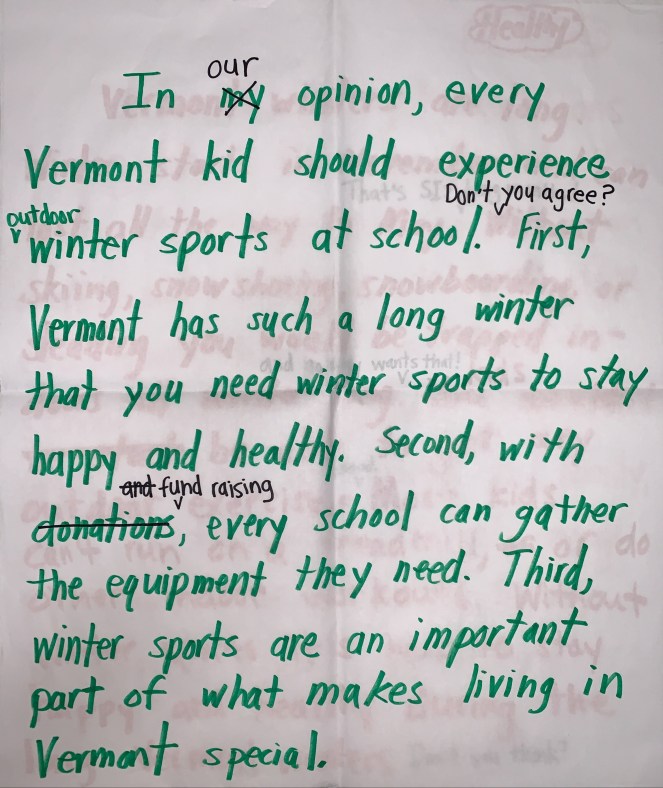 our
In my opinion, every
Vermont kid should experience
Don't you agree?
outdoor
winter sports at school. First,
Vermont has such a long winter
that you need winter sports to stay
happy and healthy. Second, with
and fund raising
donations, every school can gather
the equipment they need. Third,
winter sports are an important
part of what makes living in
Vermont special.